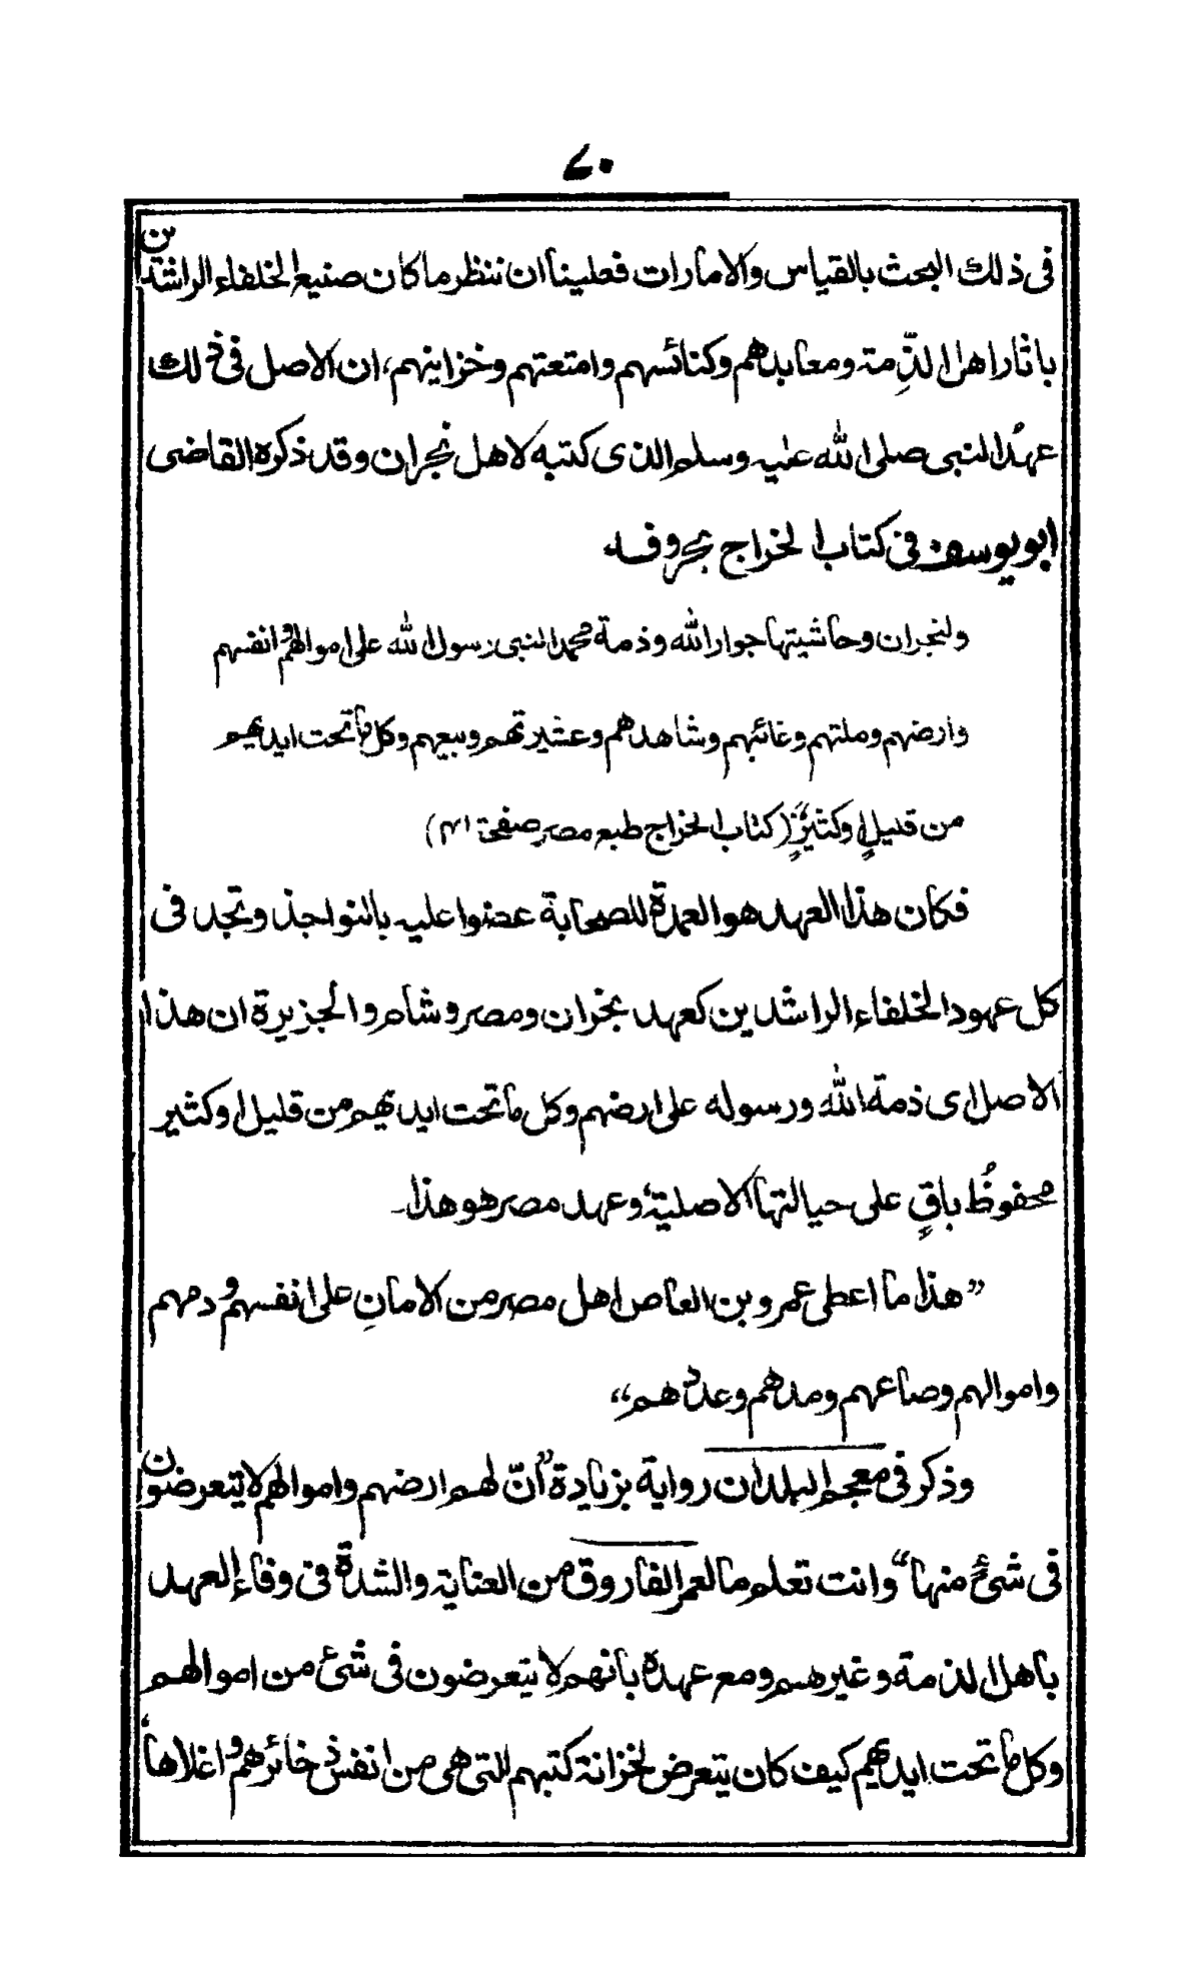 ٧٠
فى ذلك البحث بالقياس والامارات فعلينا ان ننظر ما كان صنيع الخلفاء الراشدين
باثار اهل الذِّمة ومعابدهم وكنائسهم وامتعتهم وخزاينهم، ان الاصل فى ذلك
عهدُ النبى صلى الله عليه وسلم الذى كتبه لاهل نجران وقد ذكره القاضى
ابو يوسف فى كتاب الخراج بحروفه۔
ولنجران وحاشيتها جوار الله وذمة محمد النبى رسول الله على اموالهم وانفسهم
وارضهم وملتهم وغائبهم وشاهدهم وعشيرتهم وبيعهم وكل ما تحت ايديهم
من قليلٍ اوكثيرٍ" (كتاب الخراج طبع مصر صفحة ٤١)
فكان هذا العهد هو العمدة للصحابة عضوا عليه بالنواجذ وتجد فى
كل عهود الخلفاء الراشدين كعهد نجران ومصر وشام والجزيرة ان هذا
الاصل اى ذمة الله ورسوله على ارضهم وكل ما تحت ايديهم من قليل اوكثير
محفوظُ باقٍ على حيالتها الاصلية، وعهد مصر هو هذا۔
"هذا ما اعطى عمرو بن العاص اهل مصر من الامانِ على انفسهم ودمهم
واموالهم وصاعهم ومدهم وعددهم"
وذكر فى معجم البلدان رواية بزيادة "انّ لهم ارضهم واموالهم لا يتعرضون
فى شئ منها" وانت تعلم ما لعمر الفاروق من العناية والشدة فى وفاء العهد
باهل الذمة وغيرهم ومع عهده بانهم لا يتعرضون فى شئ من اموالهم
وكل ما تحت ايديهم كيف كان يتعرض لخزانة كتبهم التى هى من انفس ذخائرهم واغلاها،